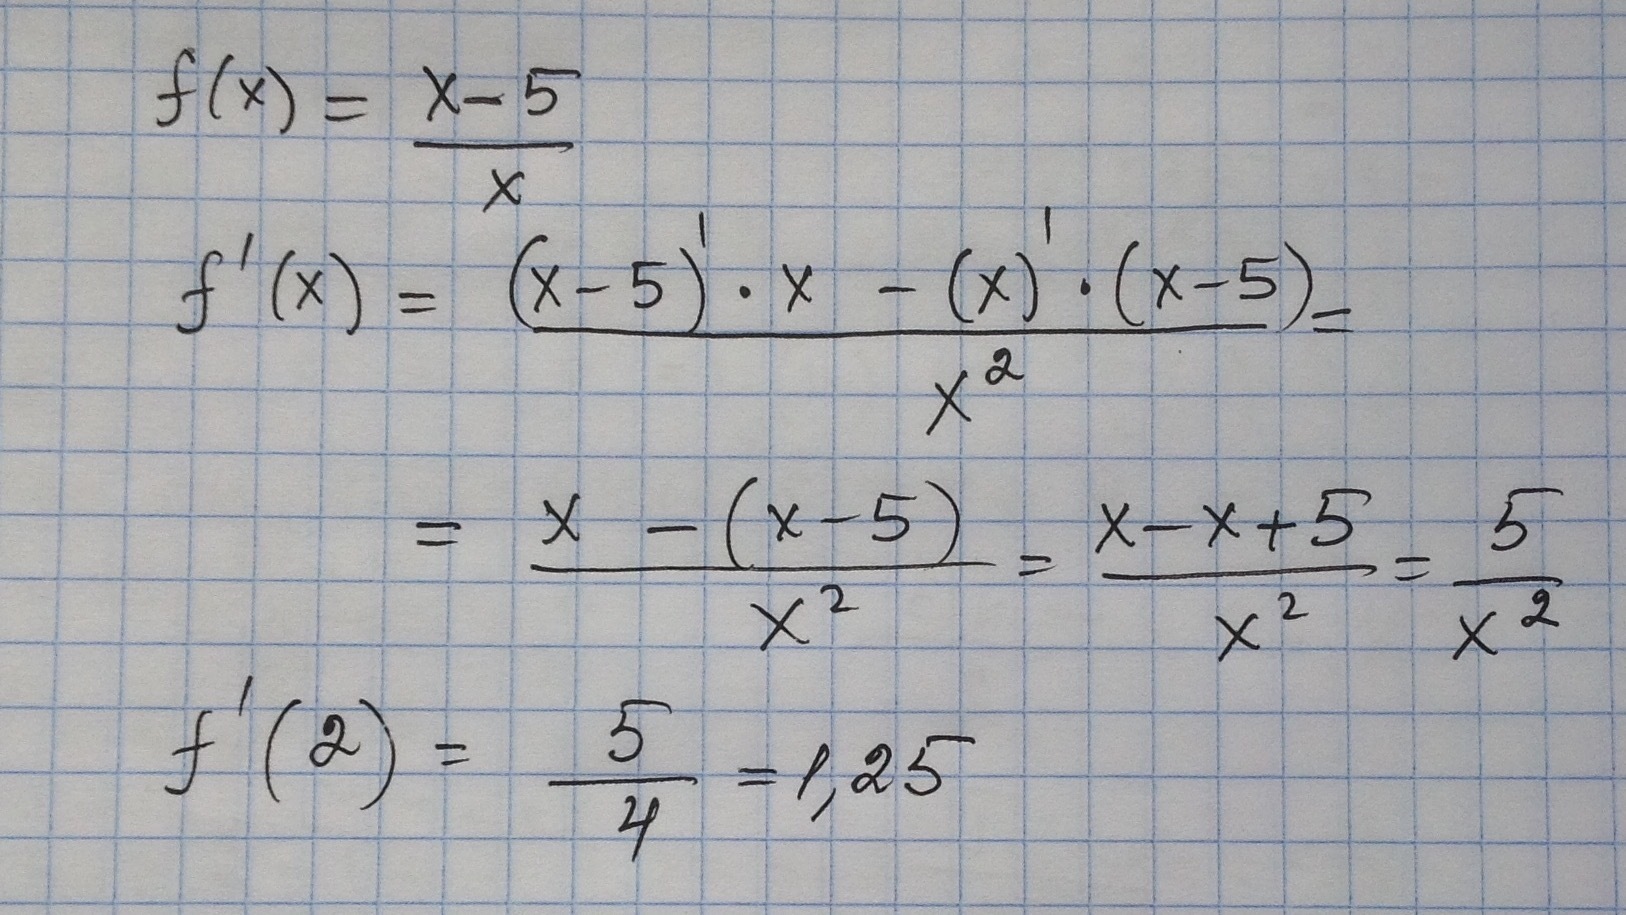 f(x) = (x-5)/x
f'(x) = ((x-5)' · x - (x)' · (x-5))/x² =
= (x - (x-5))/x² = (x-x+5)/x² = 5/x²
f'(2) = 5/4 = 1,25